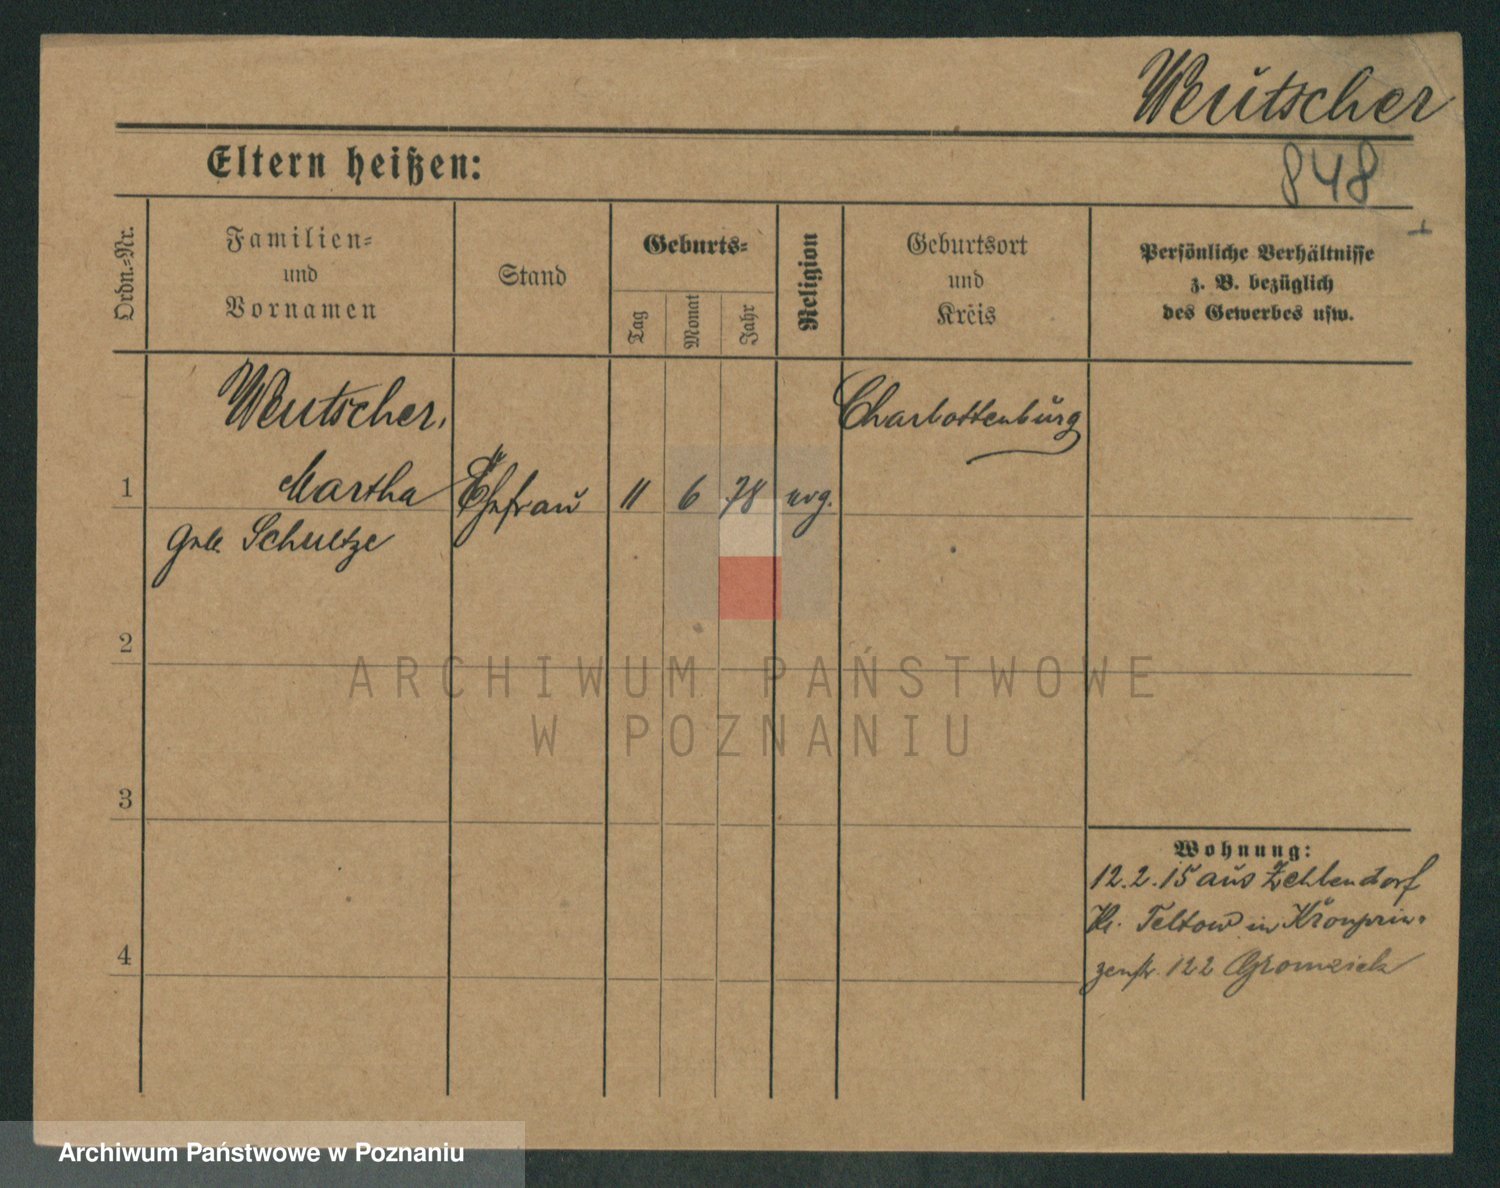 Weutscher
Eltern heißen:
848
Ordn.-Nr.
Familien-
und
Vornamen
Stand
Geburts-
Tag
Monat
Jahr
Religion
Geburtsort
und
Kreis
Persönliche Verhältnisse
z. B. bezüglich
des Gewerbes usw.
1
Weutscher,
Martha
geb. Schultze
Ehefrau
11
6
78
evg.
Charlottenburg
2
3
4
Wohnung:
12.2.15 aus Zehlendorf
Kr. Teltow in Kronprin-
zenstr. 122
ARCHIWUM PAŃSTWOWE
W POZNANIU
Archiwum Państwowe w Poznaniu